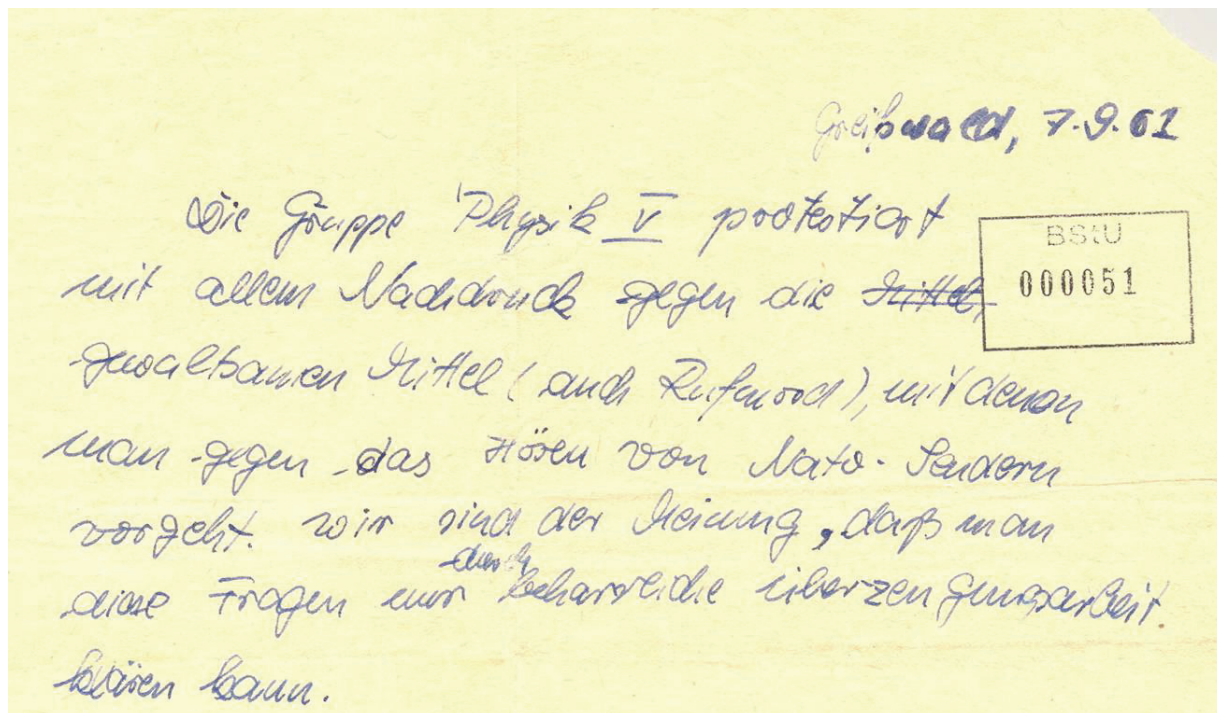 Greifswald, 7.9.61
Die Gruppe Physik V protestiert
BStU
000051
mit allem Nachdruck gegen die Mittel,
gewaltsamen Mittel (auch Rufmord), mit denen
man gegen das Hören von Nato-Sendern
vorgeht. Wir sind der Meinung, daß man
diese Fragen nur durch beharrliche Überzeugungsarbeit
klären kann.